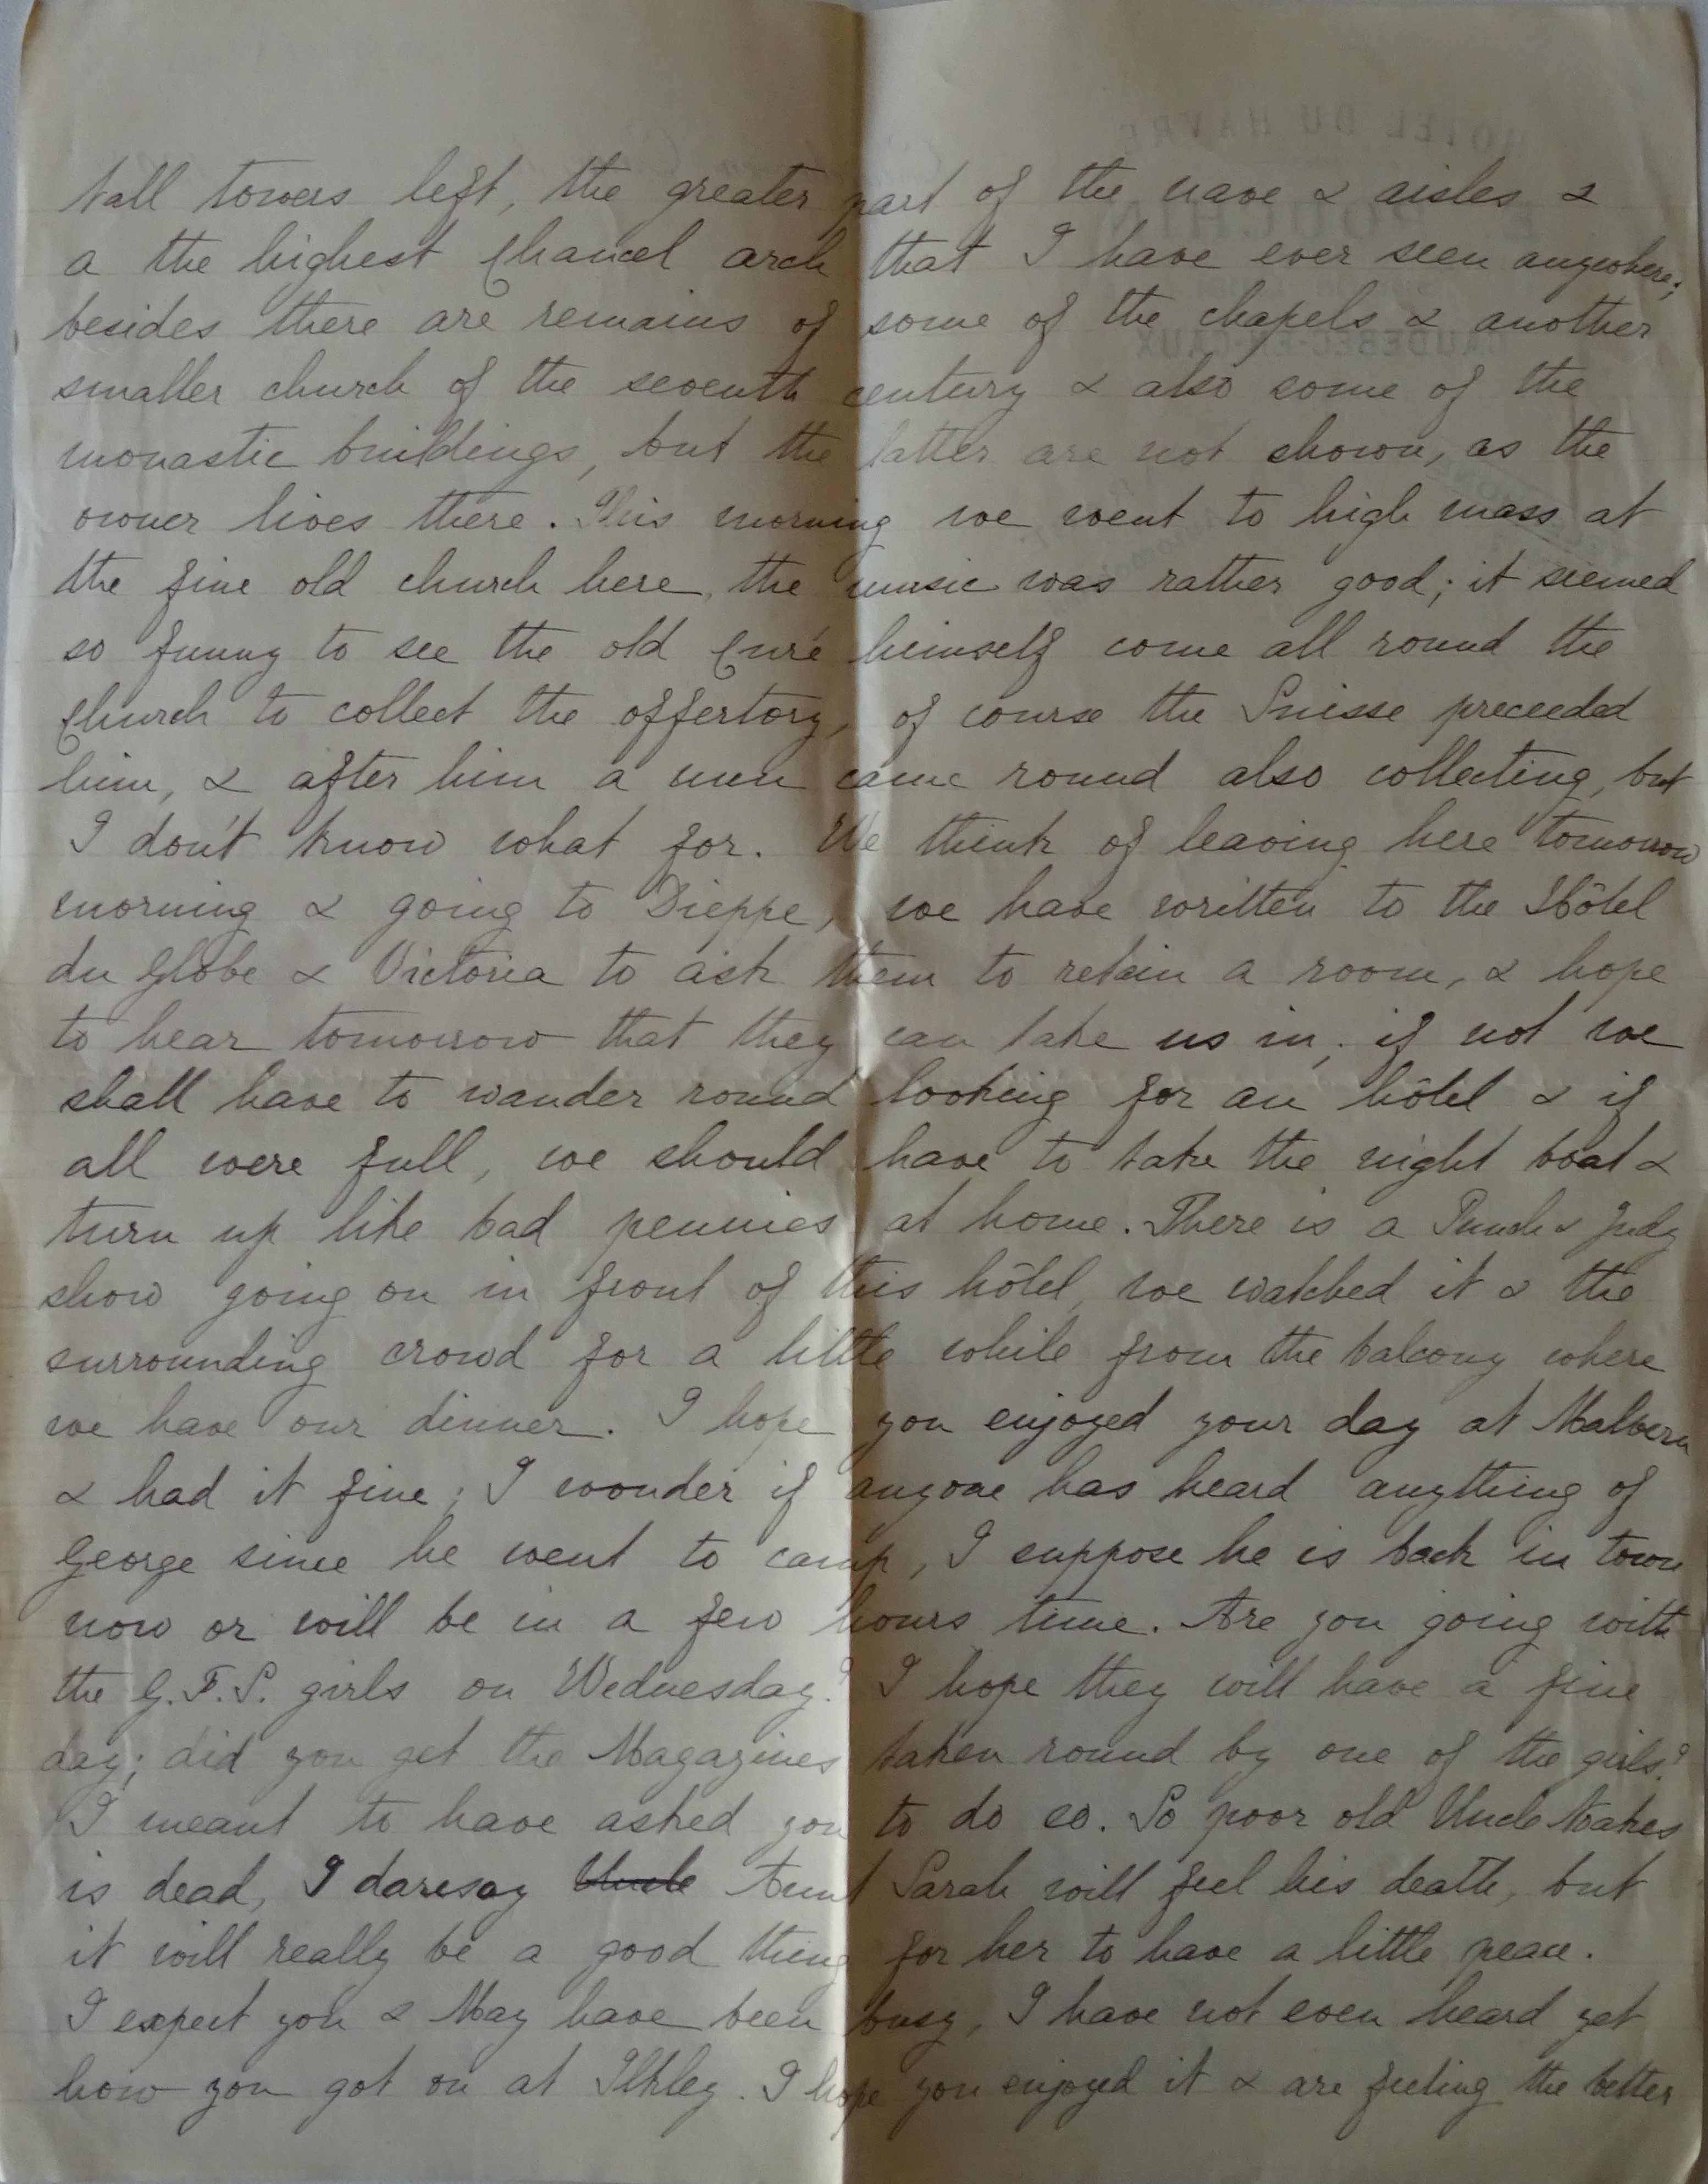 tall towers left, the greater part of the nave & aisles &
a the highest Chancel arch that I have ever seen anywhere;
besides there are remains of some of the chapels & another
smaller church of the seventh century & also some of the
monastic buildings, but the latter are not shown, as the
owner lives there. This morning we went to high mass at
the fine old church here, the music was rather good; it seemed
so funny to see the old Curé himself come all round the
Church to collect the offertory, of course the Suisse preceeded
him, & after him a nun came round also collecting, but
I don't know what for. We think of leaving here tomorrow
morning & going to Dieppe, we have written to the Hôtel
du Globe & Victoria to ask them to retain a room, & hope
to hear tomorrow that they can take us in; if not we
shall have to wander round looking for an hôtel & if
all were full, we should have to take the night boat &
turn up like bad pennies at home. There is a Punch & Judy
show going on in front of this hôtel, we watched it & the
surrounding crowd for a little while from the balcony where
we have our dinner. I hope you enjoyed your day at Malvern
& had it fine; I wonder if anyone has heard anything of
George since he went to camp, I suppose he is back in town
now or will be in a few hours time. Are you going with
the G.F.S. girls on Wednesday? I hope they will have a fine
day; did you get the Magazines taken round by one of the girls?
I meant to have asked you to do so. So poor old Uncle
is dead, I daresay Uncle Aunt Sarah will feel his death, but
it will really be a good thing for her to have a little peace.
I expect you & May have been busy, I have not even heard yet
how you got on at Ilkley. I hope you enjoyed it & are feeling the better
HOTEL DU HAVRE
CAUDEBEC-EN-CAUX